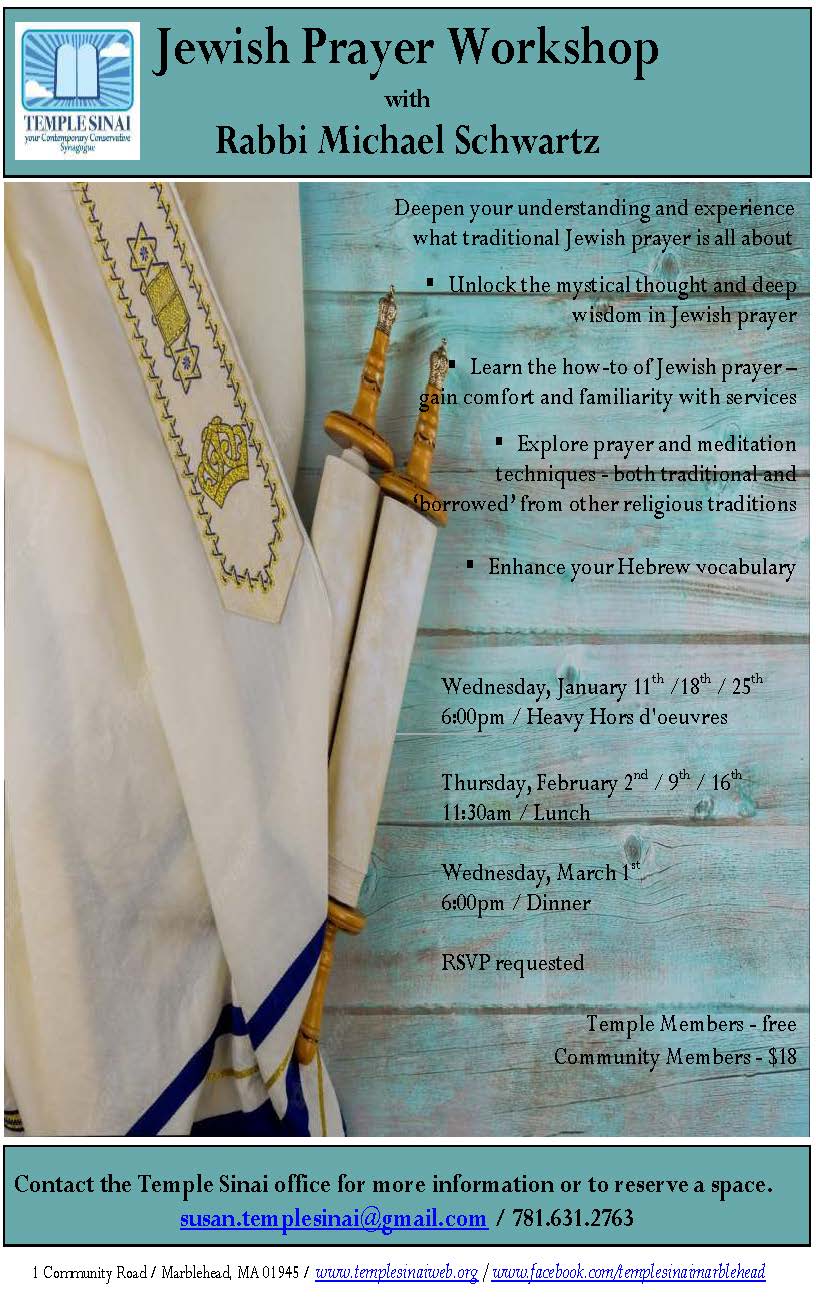 Jewish Prayer Workshop
with
Rabbi Michael Schwartz
TEMPLE SINAI
your Contemporary Conservative
Synagogue
Deepen your understanding and experience
what traditional Jewish prayer is all about
▪ Unlock the mystical thought and deep
wisdom in Jewish prayer
▪ Learn the how-to of Jewish prayer –
gain comfort and familiarity with services
▪ Explore prayer and meditation
techniques - both traditional and
‘borrowed’ from other religious traditions
▪ Enhance your Hebrew vocabulary
Wednesday, January 11th /18th / 25th
6:00pm / Heavy Hors d'oeuvres
Thursday, February 2nd / 9th / 16th
11:30am / Lunch
Wednesday, March 1st
6:00pm / Dinner
RSVP requested
Temple Members - free
Community Members - $18
Contact the Temple Sinai office for more information or to reserve a space.
susan.templesinai@gmail.com / 781.631.2763
1 Community Road / Marblehead, MA 01945 / www.templesinaiweb.org / www.facebook.com/templesinaimarblehead